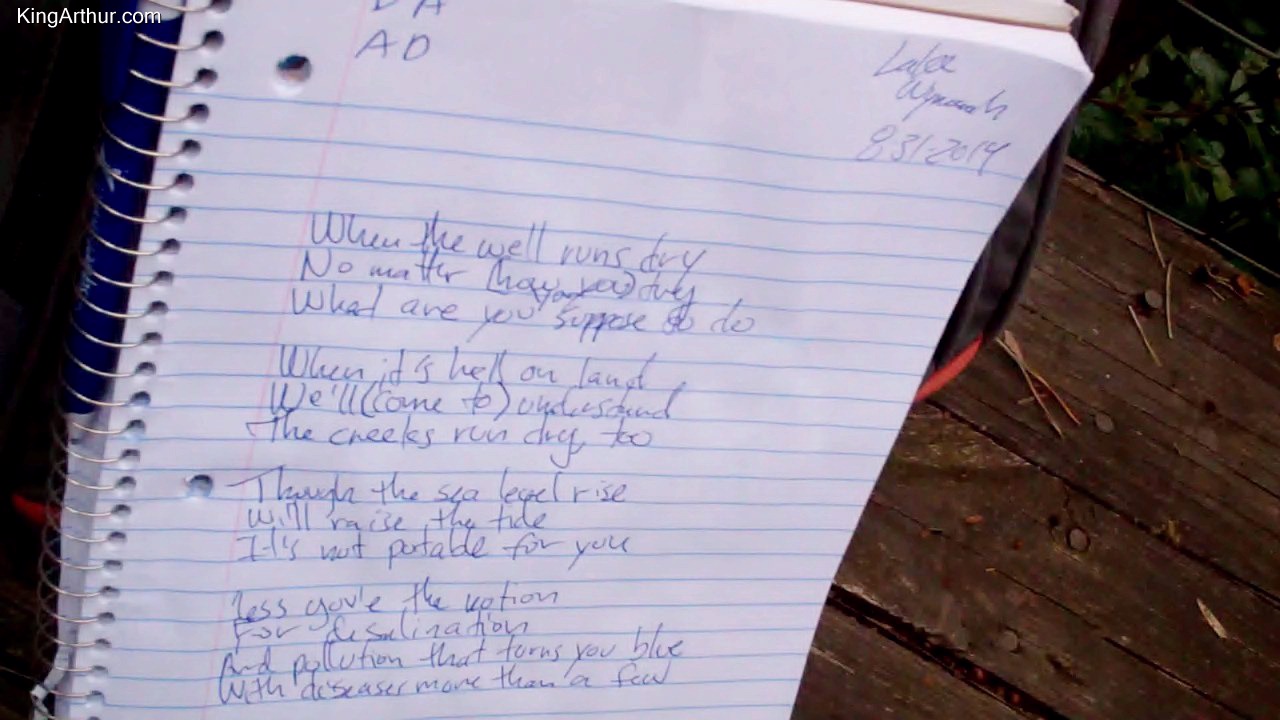 KingArthur.com
DA
AD
8-31-2014
When the well runs dry
No matter (how you) try
What are you suppose to do
When it's hell on land
We'll (come to) undersand
The creeks run dry, too
Though the sea level rise
Will raise the tide
It's not potable for you
Less you've the notion
For desalination
And pollution that turns you blue
With diseases more than a few